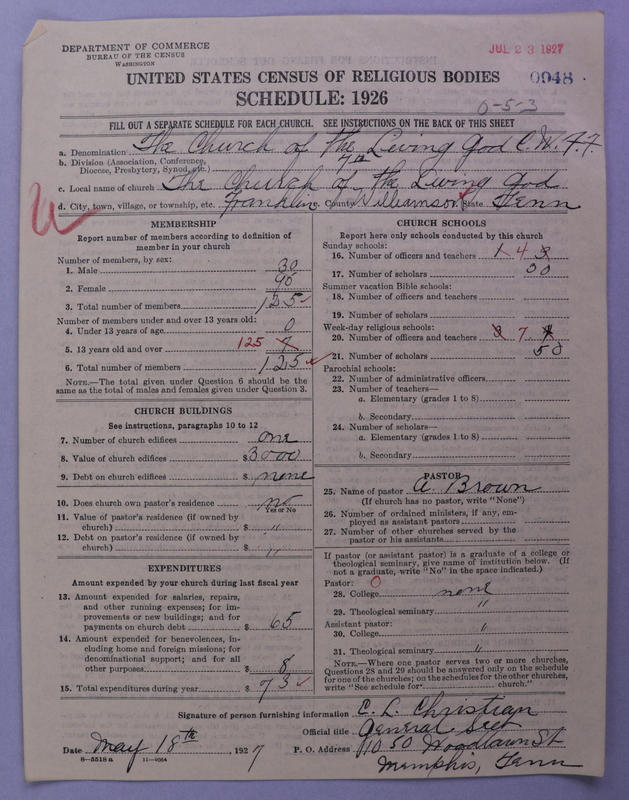 DEPARTMENT OF COMMERCE
BUREAU OF THE CENSUS
WASHINGTON
JUL 23 1927
UNITED STATES CENSUS OF RELIGIOUS BODIES
0948
SCHEDULE: 1926
0-5-3
FILL OUT A SEPARATE SCHEDULE FOR EACH CHURCH. SEE INSTRUCTIONS ON THE BACK OF THIS SHEET
a. Denomination The Church of the Living God C.W.F.F.
b. Division (Association, Conference, Diocese, Presbytery, Synod, etc.) 7th
c. Local name of church The Church of the Living God
d. City, town, village, or township, etc. Franklin County Williamson State Tenn
MEMBERSHIP
Report number of members according to definition of
member in your church
Number of members, by sex:
1. Male 30
2. Female 95
3. Total number of members 125
Number of members under and over 13 years old:
4. Under 13 years of age 0
5. 13 years old and over 125
6. Total number of members 125
NOTE.—The total given under Question 6 should be the
same as the total of males and females given under Question 3.
CHURCH BUILDINGS
See instructions, paragraphs 10 to 12
7. Number of church edifices one
8. Value of church edifices $3000
9. Debt on church edifices $ none
10. Does church own pastor's residence no
Yes or No
11. Value of pastor's residence (if owned by
church) $ "
12. Debt on pastor's residence (if owned by
church) $ "
EXPENDITURES
Amount expended by your church during last fiscal year
13. Amount expended for salaries, repairs,
and other running expenses; for im-
provements or new buildings; and for
payments on church debt $ 65
14. Amount expended for benevolences, in-
cluding home and foreign missions; for
denominational support; and for all
other purposes $ 8
15. Total expenditures during year $ 73
CHURCH SCHOOLS
Report here only schools conducted by this church
Sunday schools:
16. Number of officers and teachers 1 4 3
17. Number of scholars 50
Summer vacation Bible schools:
18. Number of officers and teachers
19. Number of scholars
Week-day religious schools:
20. Number of officers and teachers 3 7
21. Number of scholars 50
Parochial schools:
22. Number of administrative officers
23. Number of teachers—
a. Elementary (grades 1 to 8)
b. Secondary
24. Number of scholars—
a. Elementary (grades 1 to 8)
b. Secondary
PASTOR
25. Name of pastor A. Brown
(If church has no pastor, write "None")
26. Number of ordained ministers, if any, em-
ployed as assistant pastors
27. Number of other churches served by the
pastor or his assistants
If pastor (or assistant pastor) is a graduate of a college or
theological seminary, give name of institution below. (If
not a graduate, write "No" in the space indicated.)
Pastor: 0
28. College none
29. Theological seminary "
Assistant pastor:
30. College "
31. Theological seminary "
NOTE.—Where one pastor serves two or more churches,
Questions 28 and 29 should be answered only on the schedule
for one of the churches; on the schedules for the other churches,
write "See schedule for church."
Signature of person furnishing information E. L. Christian
Official title General Sect
Date May 18th, 1927
P. O. Address 1050 Woodlawn St
Memphis, Tenn
8—5518 a
11—9064